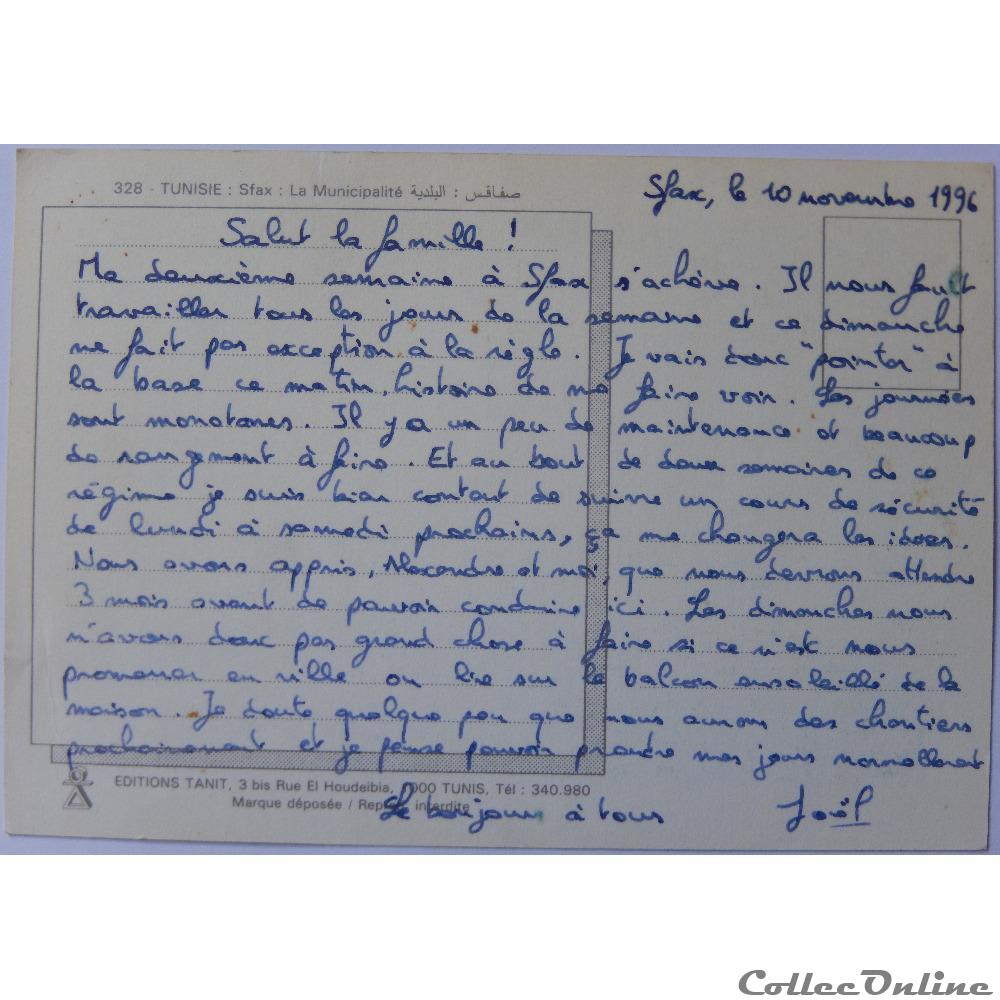 328 - TUNISIE : Sfax : La Municipalité صفاقس : البلدية
Sfax, le 10 novembre 1996
Salut la famille !
Ma deuxième semaine à Sfax s'achève. Il nous faut
travailler tous les jours de la semaine et ce dimanche
ne fait pas exception à la règle. Je vais donc "pointer" à
la base ce matin, histoire de me faire voir. Les journées
sont monotones. Il y a un peu de maintenance et beaucoup
de rangement à faire. Et au bout de deux semaines de ce
régime je suis bien content de suivre un cours de sécurité
de lundi à samedi prochains, ça me changera les idées.
Nous avons appris, Alexandre et moi, que nous devrons attendre
3 mois avant de pouvoir conduire ici. Les dimanches nous
n'avons donc pas grand chose à faire si ce n'est nous
promener en ville ou lire sur le balcon ensoleillé de la
maison. Je doute quelque peu que nous aurons des chantiers
prochainement et je pense pouvoir prendre mes jours normalement
EDITIONS TANIT, 3 bis Rue El Houdeibia, 1000 TUNIS, Tél : 340.980
Marque déposée / Repro. interdite
Le bonjour à tous Joël
CollecOnline